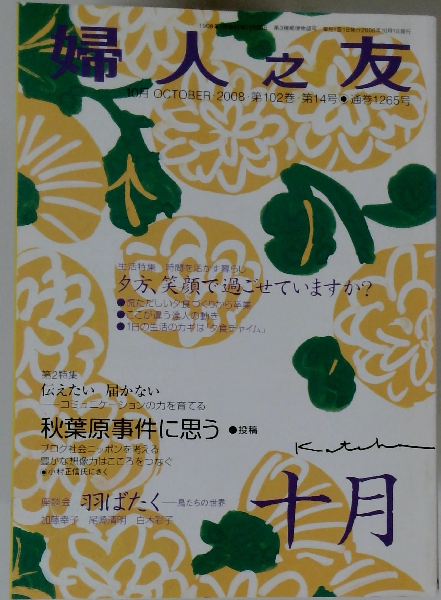 婦人之友
10月 OCTOBER・2008・第102巻・第14号●通巻1265号
生活特集 時間を活かす暮らし
夕方、笑顔で過ごせていますか?
●慌ただしい夕食づくりから卒業
●ここが違う達人の動き
●1日の生活のカギは「夕食チャイム」
第2特集
伝えたい 届かない
──コミュニケーションの力を育てる
秋葉原事件に思う ●投稿
ブログ社会ニッポンを考える
豊かな想像力はこころをつなぐ
●小村正信氏にきく
座談会 羽ばたく──鳥たちの世界
加藤幸子 尾崎清明
十月